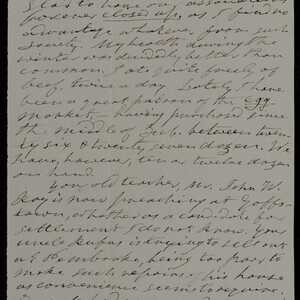 I was to have our association
forever closed up, as I find no
advantage whatever, from such
society. My health during the
winter was decidedly better than
common. I ate quite freely of
beef, twice a day. Lately, I have
been a great patron of the egg-
market — having purchased since
the middle of Feb. between twen-
ty six & twenty seven dozen. We
have, however, ten or twelve dozen
on hand.
Your old teacher, Mr. John W.
Ray is now preaching at Goffs-
town, whether as a candidate for
settlement I do not know. Your
uncle Rufus is trying to sell out
at Pembroke, being too poor to
make such repairs in his house
as convenience seems to require.